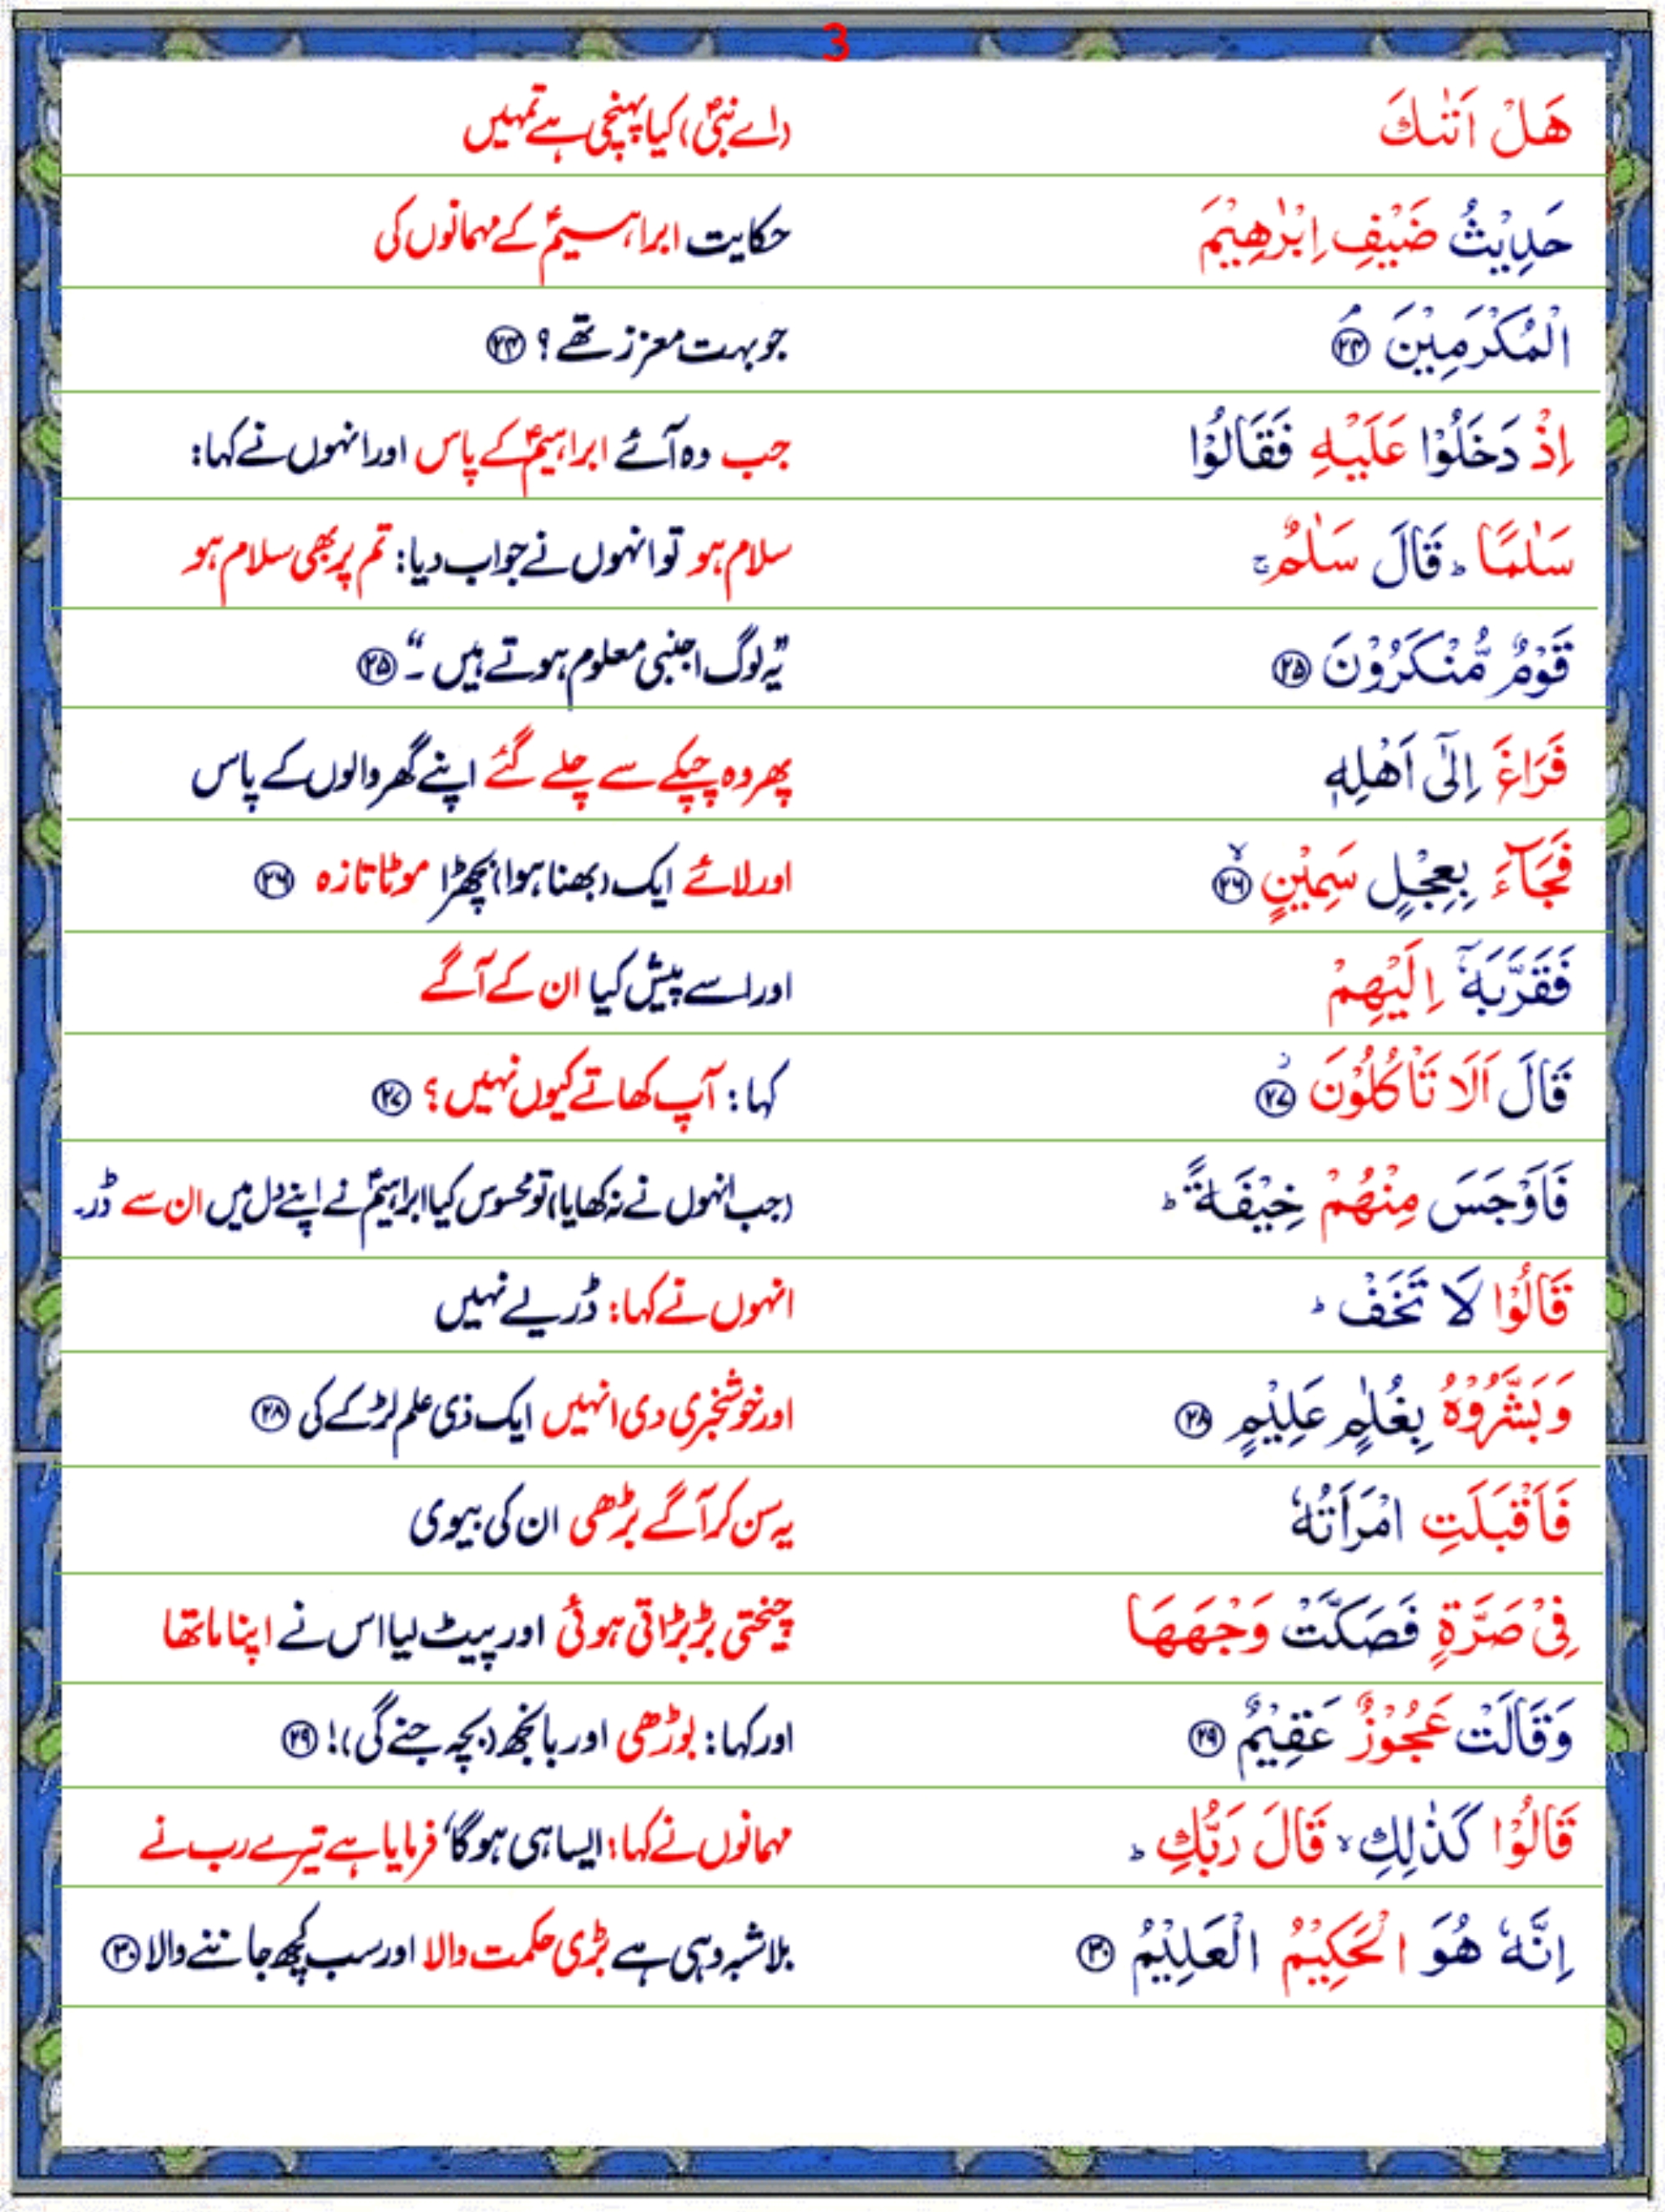 3
هَلْ اَتٰىكَ (اے نبیؐ) کیا پہنچی ہے تمہیں
حَدِيْثُ ضَيْفِ اِبْرٰهِيْمَ حکایت ابراہیمؑ کے مہمانوں کی
الْمُكْرَمِيْنَ ۘ ﴿۲۴﴾ جو بہت معزز تھے ؟ ﴿۲۴﴾
اِذْ دَخَلُوْا عَلَيْهِ فَقَالُوْا جب وہ آئے ابراہیمؑ کے پاس اور انہوں نے کہا:
سَلٰمًا ؕ قَالَ سَلٰمٌ ۚ سلام ہو تو انہوں نے جواب دیا: تم پر بھی سلام ہو
قَوْمٌ مُّنْكَرُوْنَ ﴿۲۵﴾ ”یہ لوگ اجنبی معلوم ہوتے ہیں ۔“ ﴿۲۵﴾
فَرَاغَ اِلٰٓى اَهْلِهٖ پھر وہ چپکے سے چلے گئے اپنے گھر والوں کے پاس
فَجَآءَ بِعِجْلٍ سَمِيْنٍ ۙ ﴿۲۶﴾ اور لائے ایک (بھنا ہوا) بچھڑا موٹا تازہ ﴿۲۶﴾
فَقَرَّبَهٗۤ اِلَيْهِمْ اور اسے پیش کیا ان کے آگے
قَالَ اَلَا تَاْكُلُوْنَ ؗ ﴿۲۷﴾ کہا: آپ کھاتے کیوں نہیں ؟ ﴿۲۷﴾
فَاَوْجَسَ مِنْهُمْ خِيْفَةً ؕ (جب انہوں نے نہ کھایا) تو محسوس کیا ابراہیمؑ نے اپنے دل میں ان سے ڈر۔
قَالُوْا لَا تَخَفْ ؕ انہوں نے کہا: ڈریے نہیں
وَبَشَّرُوْهُ بِغُلٰمٍ عَلِيْمٍ ﴿۲۸﴾ اور خوشخبری دی انہیں ایک ذی علم لڑکے کی ﴿۲۸﴾
فَاَقْبَلَتِ امْرَاَتُهٗ یہ سن کر آگے بڑھی ان کی بیوی
فِيْ صَرَّةٍ فَصَكَّتْ وَجْهَهَا چیختی بڑبڑاتی ہوئی اور پیٹ لیا اس نے اپنا ماتھا
وَقَالَتْ عَجُوْزٌ عَقِيْمٌ ﴿۲۹﴾ اور کہا: بوڑھی اور بانجھ (بچہ جنے گی)! ﴿۲۹﴾
قَالُوْا كَذٰلِكِ ۙ قَالَ رَبُّكِ ؕ مہمانوں نے کہا: ایسا ہی ہوگا‘ فرمایا ہے تیرے رب نے
اِنَّهٗ هُوَ الْحَكِيْمُ الْعَلِيْمُ ﴿۳۰﴾ بلاشبہ وہی ہے بڑی حکمت والا اور سب کچھ جاننے والا ﴿۳۰﴾